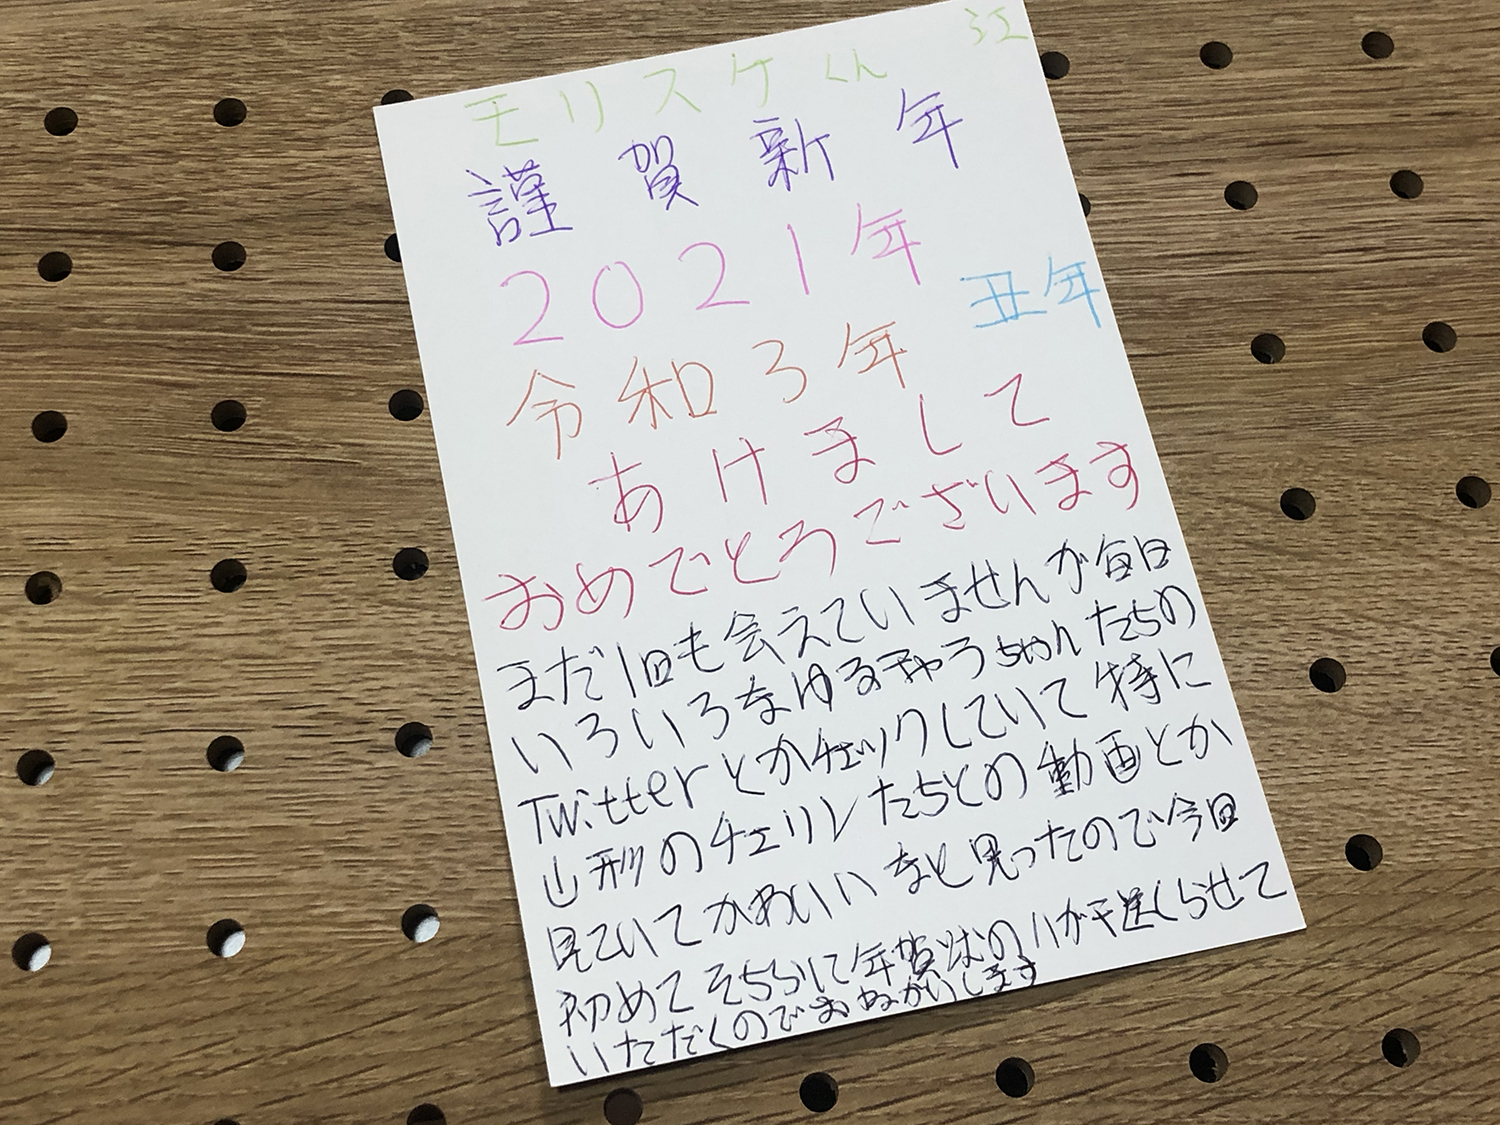 モリスケくん 江
謹賀新年
2021年
丑年
令和3年
あけまして
おめでとうございます
まだ1回も会えていませんが毎日
いろいろなゆるきゃうちゃんたちの
Twitterとかチェックしていて特に
山形のチェリンたちとの動画とか
見ていてかわいいなと思ったので今回
初めてそちらに年賀状のハガキ送くらせて
いただくのでおねがいします